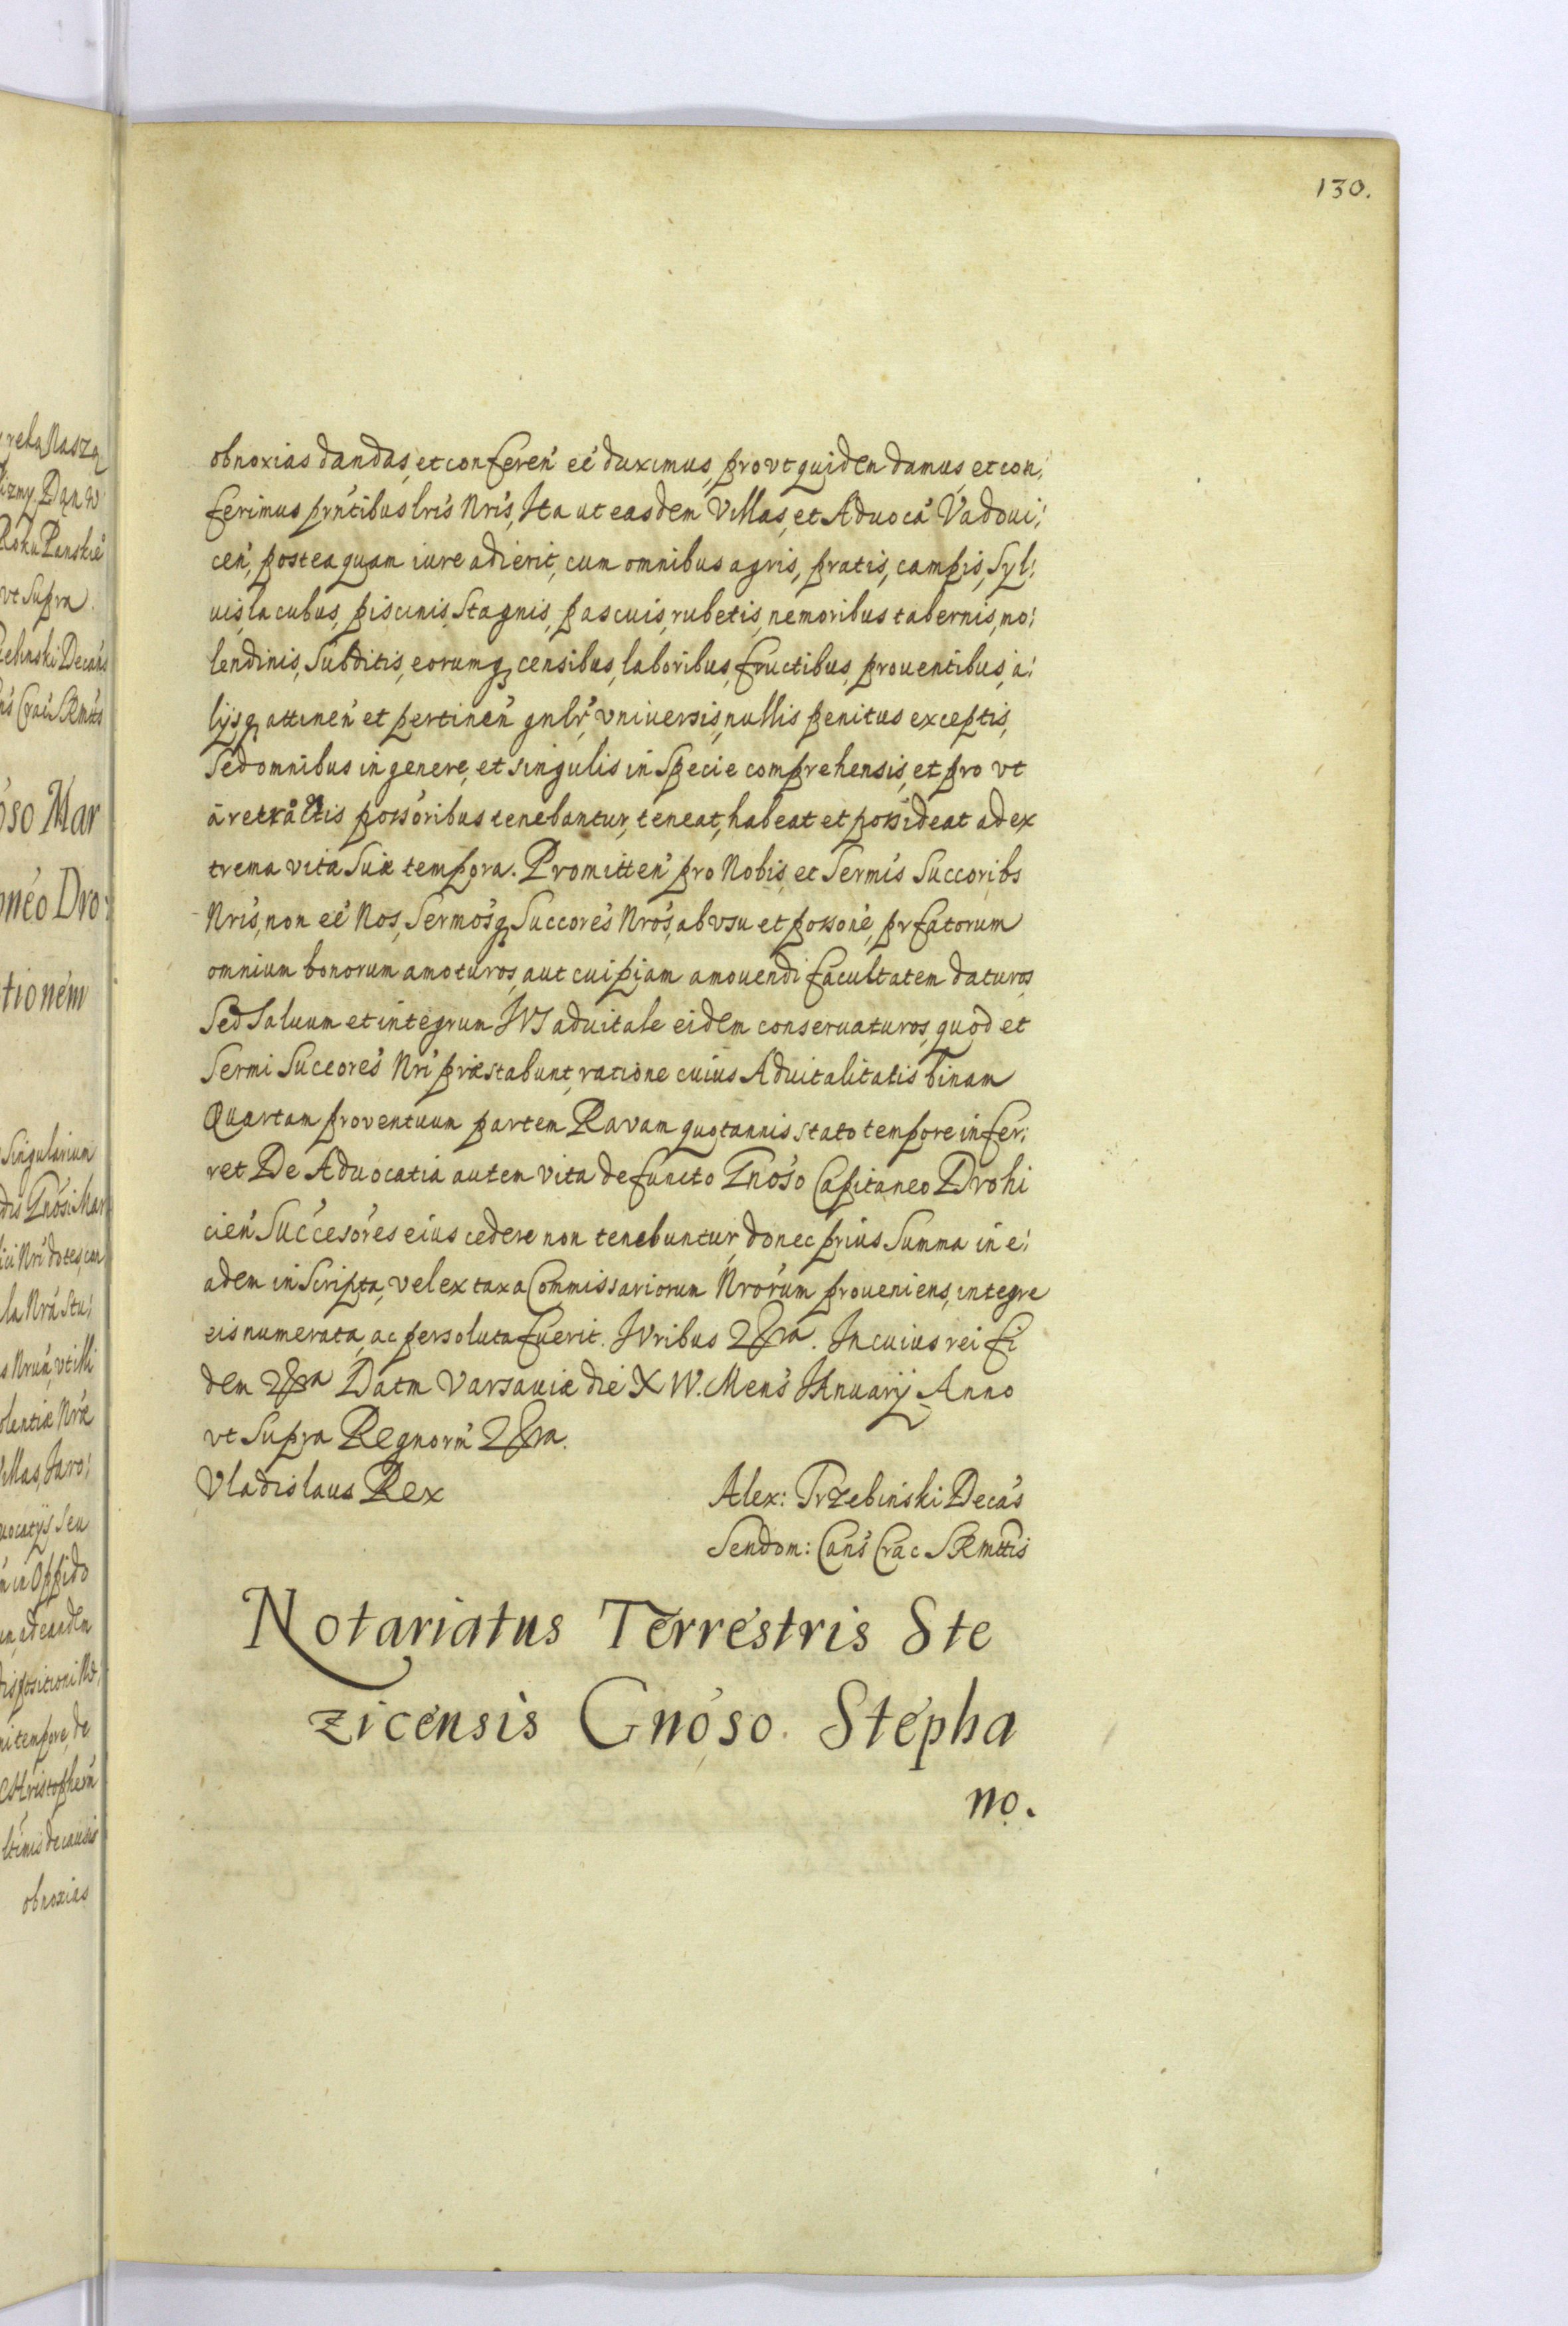 130.
obnoxias dandas, et conferen' ee' duximus, prout quidem damus, et con:
ferimus prntibus lris Nris, Ita ut easdem Villas, et Aduoca' Vadoui:
cen', postea quam iure adierit, cum omnibus agris, pratis, campis, Syl:
uis, lacubus, piscinis, Stagnis, pascuis, rubetis, nemoribus tabernis, no:
lendinis, Subditis, eorumq censibus, laboribus, fructibus, prouentibus, a:
lijsq attinen' et pertinen' gnlr', vniuersis, nullis penitus exceptis,
Sed omnibus in genere, et singulis in Specie comprehensis, et pro vt
à retractis possoribus tenebantur, teneat, habeat et possideat ad ex
trema vitæ Suæ tempora. Promitten' pro Nobis et Sermis Succoribs
Nris, non ee' Nos, Sermosq Succores Nros, ab vsu et possone', prfatorum
omnium bonorum amoturos, aut cuipiam amouendi facultatem daturos,
Sed Saluum et integrum IVS aduitale eidem conseruaturos, quod et
Sermi Succores Nri præstabunt, ratione cuius Aduitalitatis binam
Quartam proventuum partem Ravam quotannis stato tempore infer:
ret De Aduocatia autem vita defuncto Gnoso Capitaneo Drohi
cien' Succesores eius cedere non tenebuntur, donec prius Summa in e:
adem inscripta, vel ex taxa Commissariorum Nrorum proueniens, integre
eis numerata, ac persoluta fuerit. Iuribus &ra. In cuius rei fi
dem &ra Datm Varsauiæ die XIV. Mens Ianuarij Anno
vt Supra Regnorm' &ra.
Vladislaus Rex
Alex: Trzebiński Deca's
Sendom: Cans Crac SRMttis
Notariatus Terrestris Ste
zicensis Gnoso. Stepha
no.